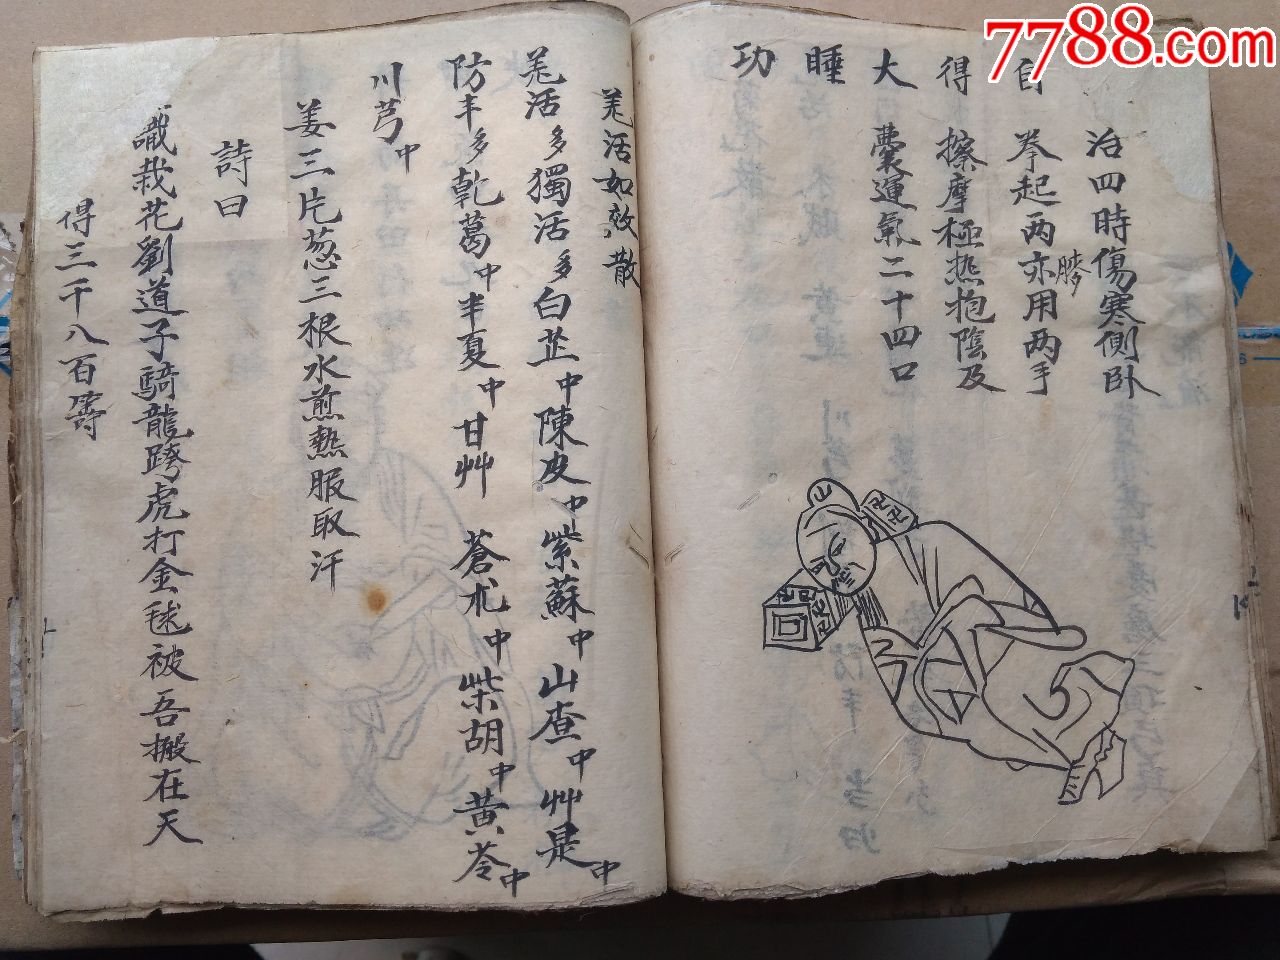 7788.com
自得大睡功
治四時傷寒側卧
拳起两亦用两手
膝
擦摩極热抱陰及
囊運氣二十四口
羌活如效散
羌活多獨活多白芷中陳皮中紫蘇中山查中艸是中
防丰多乾葛中半夏中甘艸 蒼朮中柴胡中黄苓中
川芎中
姜三片葱三根水煎热服取汗
詩曰
識栽花劉道子騎龍跨虎打金毬被吾搬在天
得三千八百